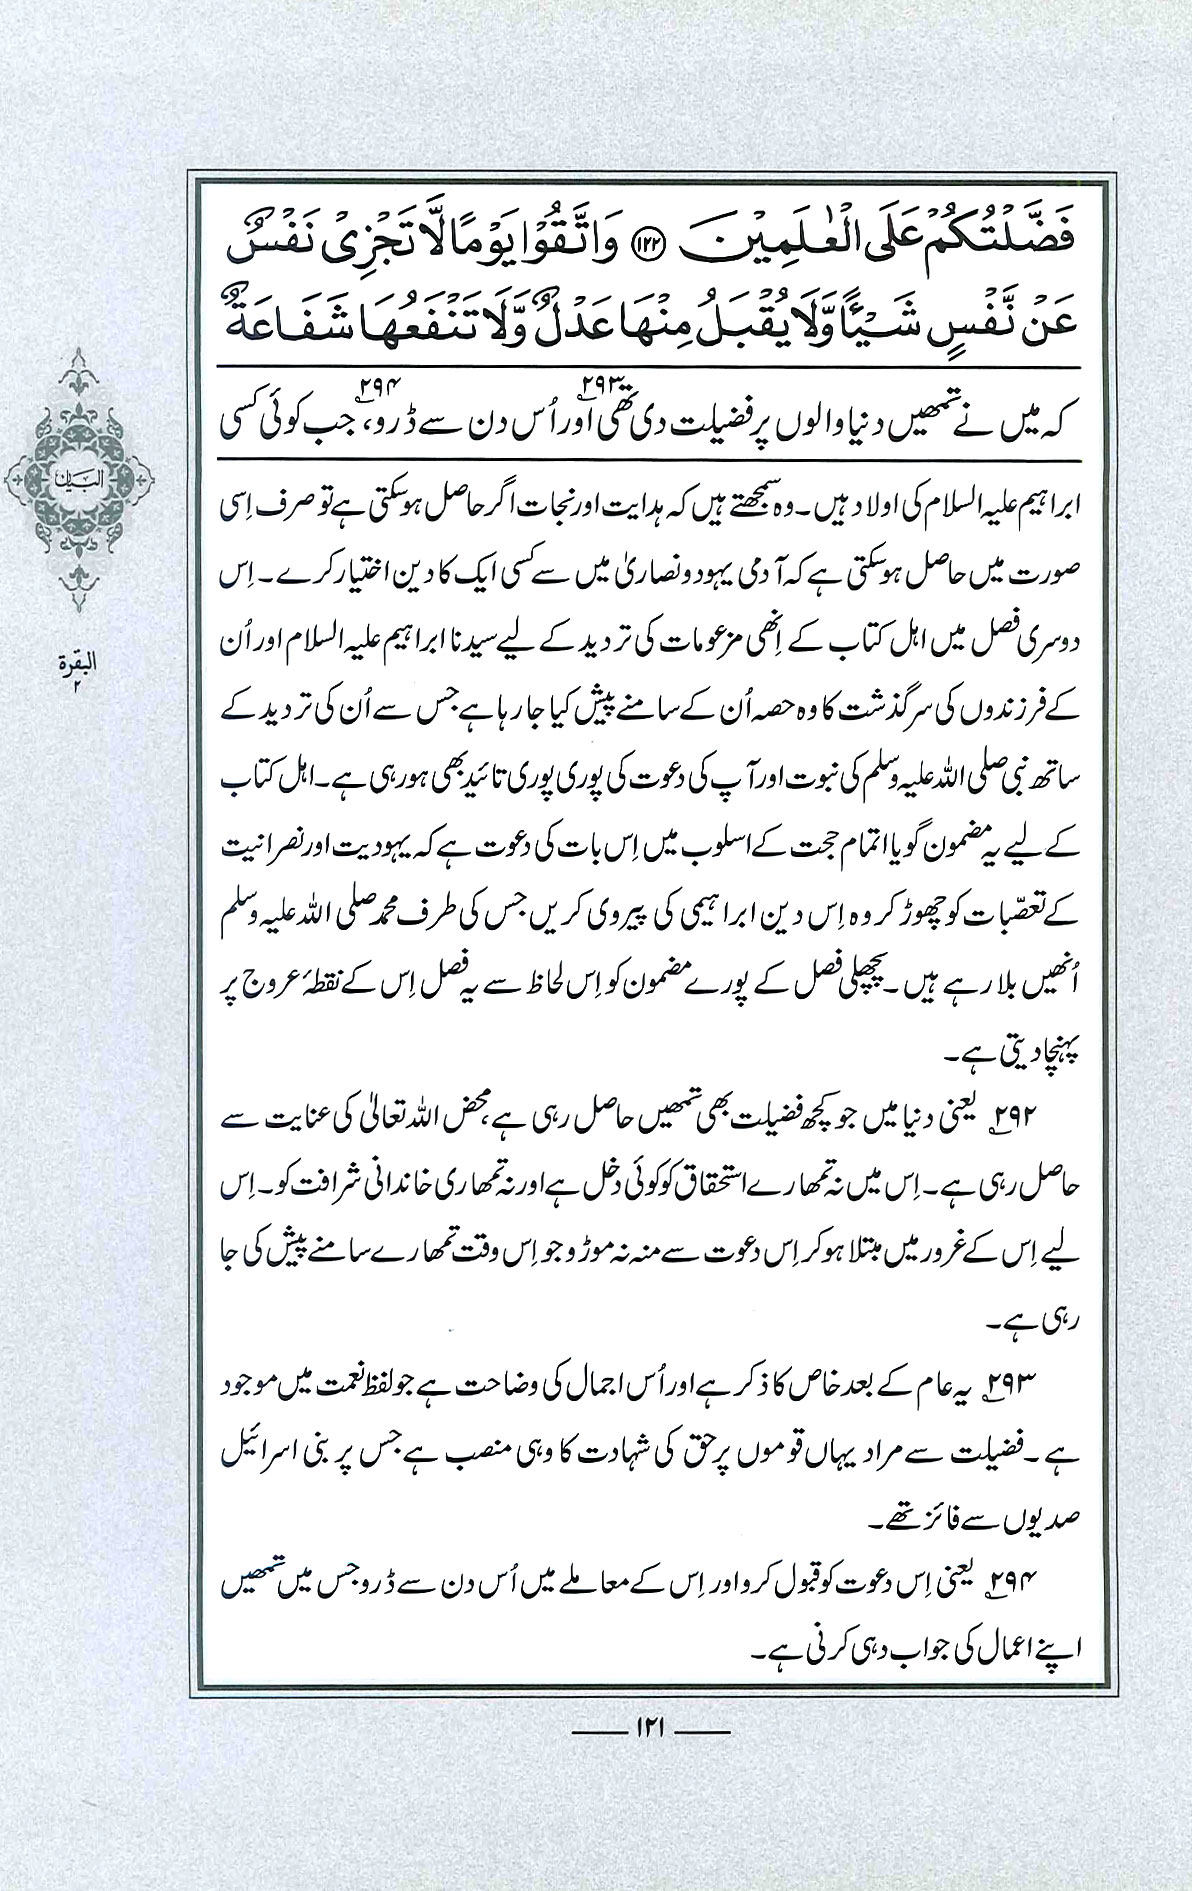 فَضَّلْتُكُمْ عَلَى الْعٰلَمِيْنَ ﴿۱۲۲﴾ وَاتَّقُوْا يَوْمًا لَّا تَجْزِىْ نَفْسٌ
عَنْ نَّفْسٍ شَيْـًٔا وَّلَا يُقْبَلُ مِنْهَا عَدْلٌ وَّلَا تَنْفَعُهَا شَفَاعَةٌ
کہ میں نے تمھیں دنیا والوں پر فضیلت دی تھی ۲۹۳ اور اُس دن سے ڈرو، ۲۹۴ جب کوئی کسی
ابراہیم علیہ السلام کی اولاد ہیں۔ وہ سمجھتے ہیں کہ ہدایت اور نجات اگر حاصل ہو سکتی ہے تو صرف اِسی
صورت میں حاصل ہو سکتی ہے کہ آدمی یہود و نصاریٰ میں سے کسی ایک کا دین اختیار کرے۔ اِس
دوسری فصل میں اہل کتاب کے اِنھی مزعومات کی تردید کے لیے سیدنا ابراہیم علیہ السلام اور اُن
کے فرزندوں کی سرگذشت کا وہ حصہ اُن کے سامنے پیش کیا جا رہا ہے جس سے اُن کی تردید کے
ساتھ نبی صلی اللہ علیہ وسلم کی نبوت اور آپ کی دعوت کی پوری پوری تائید بھی ہو رہی ہے۔ اہل کتاب
کے لیے یہ مضمون گویا اتمام حجت کے اسلوب میں اِس بات کی دعوت ہے کہ یہودیت اور نصرانیت
کے تعصّبات کو چھوڑ کر وہ اِس دین ابراہیمی کی پیروی کریں جس کی طرف محمد صلی اللہ علیہ وسلم
اُنھیں بلا رہے ہیں۔ پچھلی فصل کے پورے مضمون کو اِس لحاظ سے یہ فصل اِس کے نقطۂ عروج پر
پہنچا دیتی ہے۔
۲۹۲ یعنی دنیا میں جو کچھ فضیلت بھی تمھیں حاصل رہی ہے، محض اللہ تعالیٰ کی عنایت سے
حاصل رہی ہے۔ اِس میں نہ تمھارے استحقاق کو کوئی دخل ہے اور نہ تمھاری خاندانی شرافت کو۔ اِس
لیے اِس کے غرور میں مبتلا ہو کر اِس دعوت سے منہ نہ موڑو جو اِس وقت تمھارے سامنے پیش کی جا
رہی ہے۔
۲۹۳ یہ عام کے بعد خاص کا ذکر ہے اور اُس اجمال کی وضاحت ہے جو لفظ نعمت میں موجود
ہے۔ فضیلت سے مراد یہاں قوموں پر حق کی شہادت کا وہی منصب ہے جس پر بنی اسرائیل
صدیوں سے فائز تھے۔
۲۹۴ یعنی اِس دعوت کو قبول کرو اور اِس کے معاملے میں اُس دن سے ڈرو جس میں تمھیں
اپنے اعمال کی جواب دہی کرنی ہے۔
البیان
البقرة
۲
۱۲۱